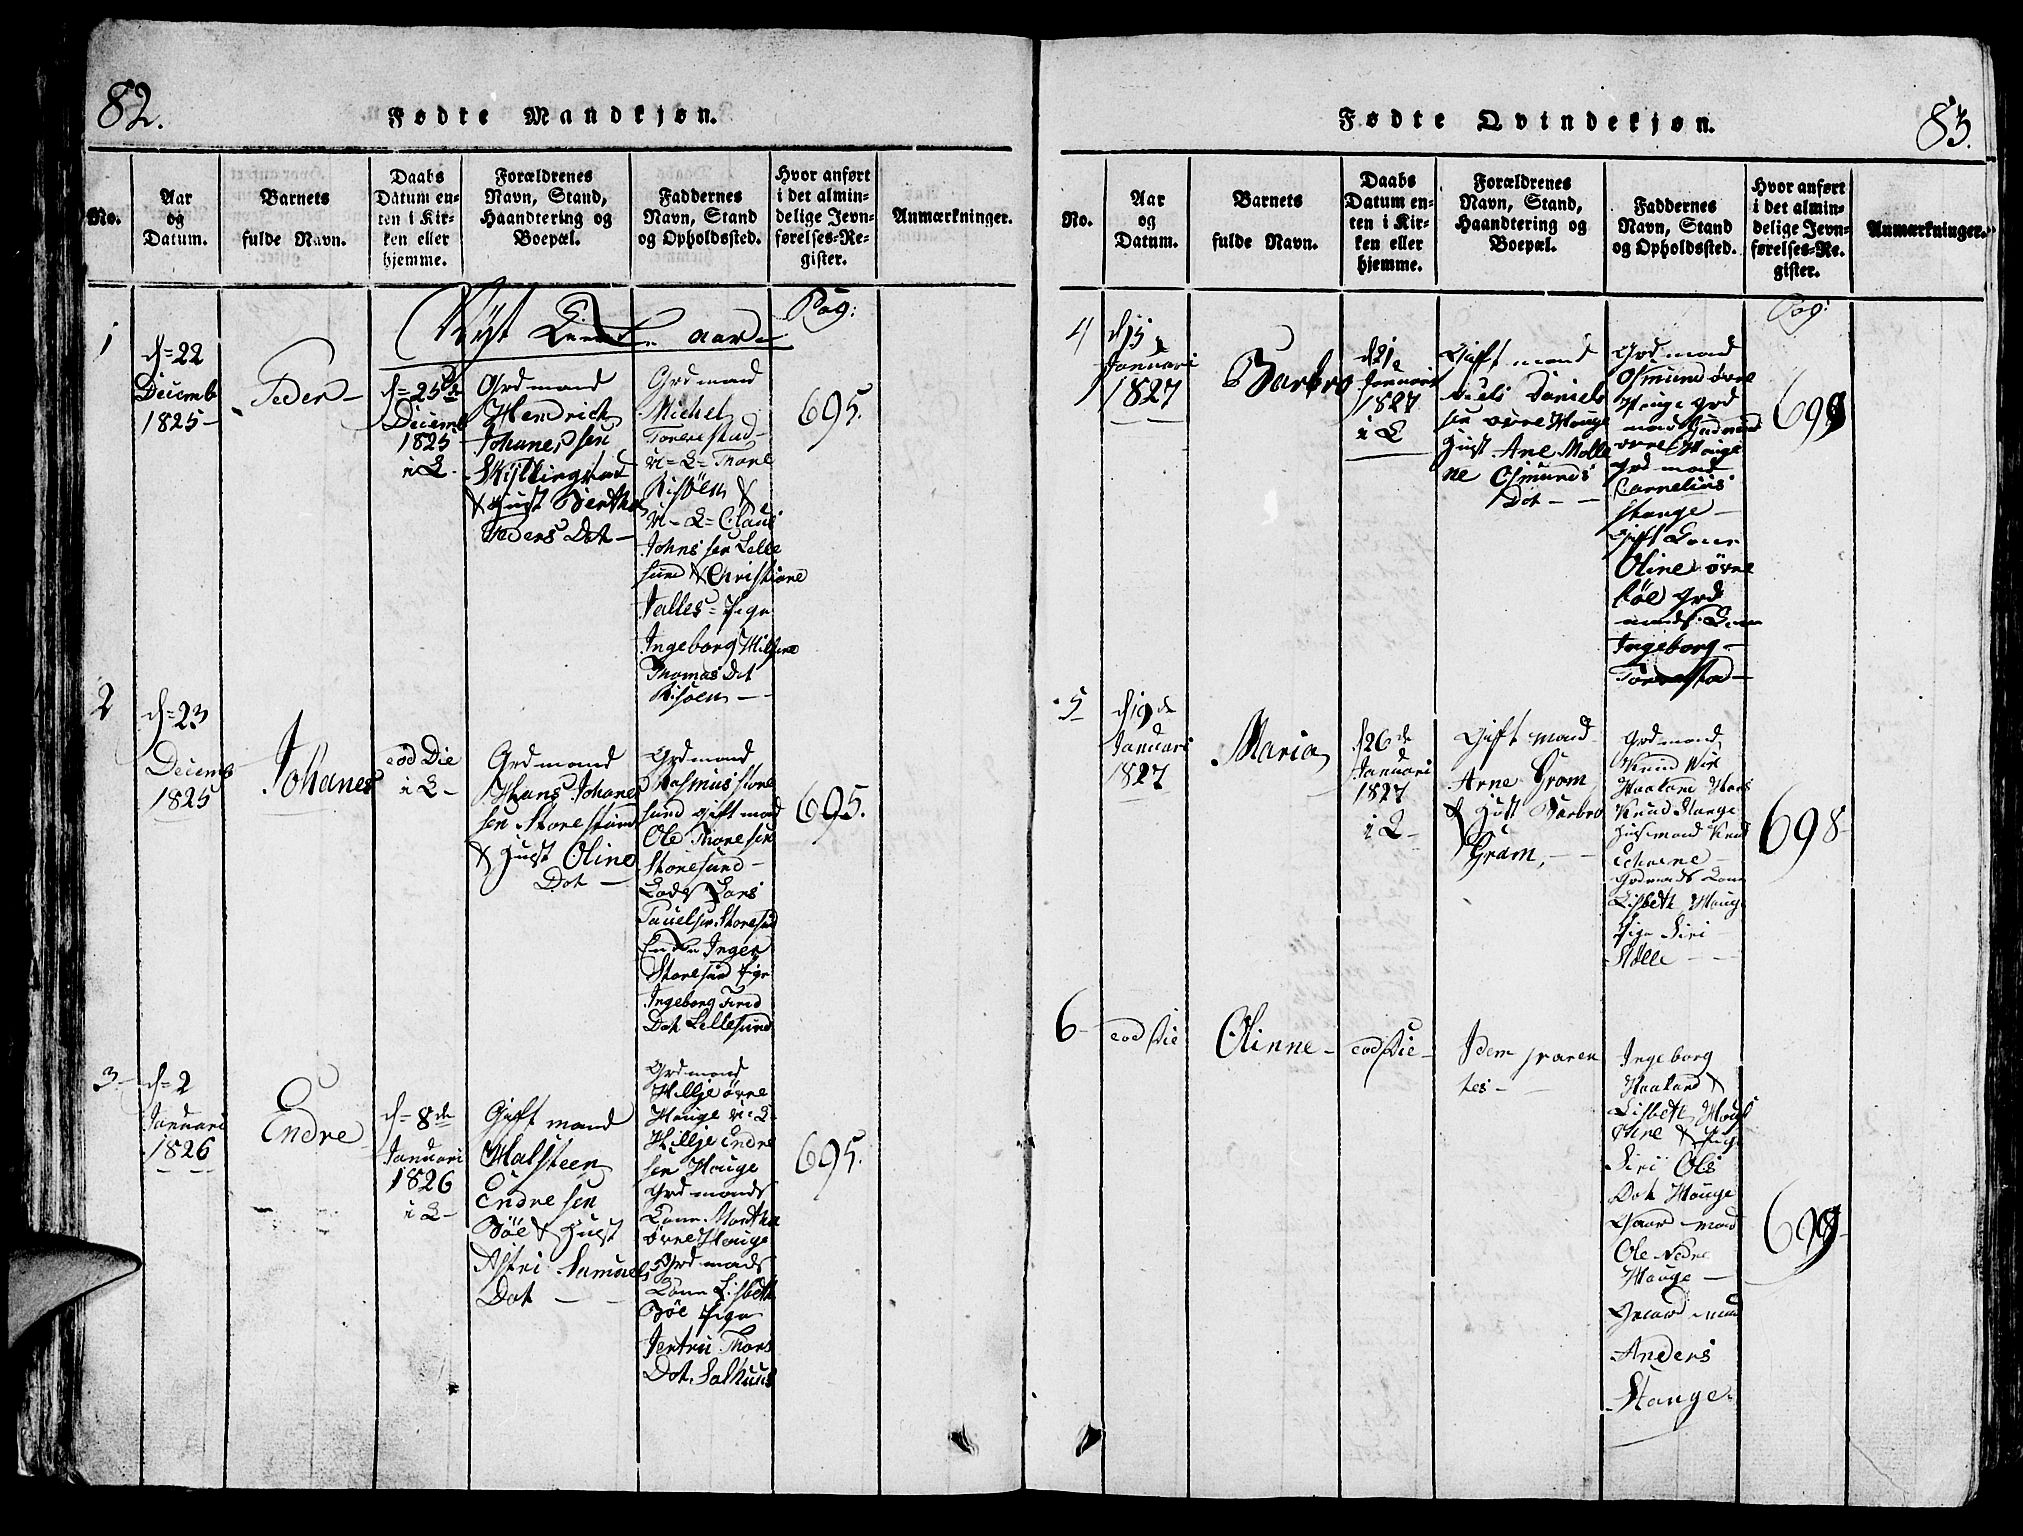 82.
Fødte Mandkjøn.
No.
Aar
og
Datum.
Barnets
fulde Navn.
Daabs
Datum en-
ten i Kir-
ken eller
hjemme.
Forældrenes
Navn, Stand,
Haandtering og
Boepæl.
Faddernes
Navn, Stand
og Opholdssted.
Hvor anført
i det almin-
delige Jevn-
førelses-Re-
gister.
Anmærkninger.
Nyt aar
Pag:
1
d=22
Decemb
1825-
Peder-
d=25de
Decemb
1825
i K
Grdmand
Hendrich
Johanessen
& Hust Bertha
Peders Dot-
Grdmand
Michel
Torrestad-
u=K= Thore
Risöen &
u-K=Claus
Johnssen Lille
sund & Christiane
Salles=Pige
Ingeborg Milsine
Thomas Dot
Risöen-
695.
2
d=23
Decemb
1825
Johanes
eod Die
i K-
Grdmand
Hans Johanes
sen Storesund
& Hust Oline
Dot-
Grdmand
Rasmus Store
sund gift mand
Ole Thoresen
Storesund-
Lods Lars
Pauelsen Storesund
Enke Inger
Storesund Pige
Ingeborg
Dot Lillesund
695.
3-
d=2
Januari
1826
Endre
d=8de
Januari
1826
i K-
Gift mand
Halsteen
Endresen
Böe & Hust
Astri Samuels
Dot
Grdmand
Hillje øvre
Hauge u=K-
Hillje Endre
sen Hauge
Grdmands
Kone Martha
øvre Hauge
Grdmands
Kone Lisbeth
Böe Pige
Jertru Thors
Dot. Salhuus
695.
83.
Fødte Qvindekjøn.
No.
Aar
og
Datum.
Barnets
fulde Navn.
Daabs
Datum en-
ten i Kir-
ken eller
hjemme.
Forældrenes
Navn, Stand,
Haandtering og
Boepæl.
Faddernes
Navn, Stand
og Opholdssted.
Hvor anført
i det almin-
delige Jevn-
førelses-Re-
gister.
Anmærkninger.
Pag:
4
d15
Januari
1827
Barbro
d21
Januari
1827
i K
Gift mand
Niels Daniels
sen øvre Hauge
Hust. Ane Malle
ne Osmunds
Dot-
Grdmand
Osmund øvre
Hauge Grd
mand Gudmund
øvre Hauge
Grdmand
Cornelius
Stange-
Gift Kone
Oline øvre
Böe Grd
mands Kone
Ingeborg-
Torrestad-
699
5
d19de
Januari
1827
Maria
d26de
Januari
1827
i K-
Gift mand
Arne Gram
& Hust Barbro
Gram,-
Grdmand
Knud
Haaland
Knud Stange
Huusmand Knud
Grdmands Kone
Lisbeth Hauge
Pige Siri
698-
6-
eod Die
Olinne-
eod Die-
Idem paren
tes-
Ingeborg
Haaland &
Lisbeth Hauge
& Pige
Siri Ols
Dot Hauge
Gaard mand
Ole Nedre
Hauge-
Gaard mand
Anders
Stange.
699-